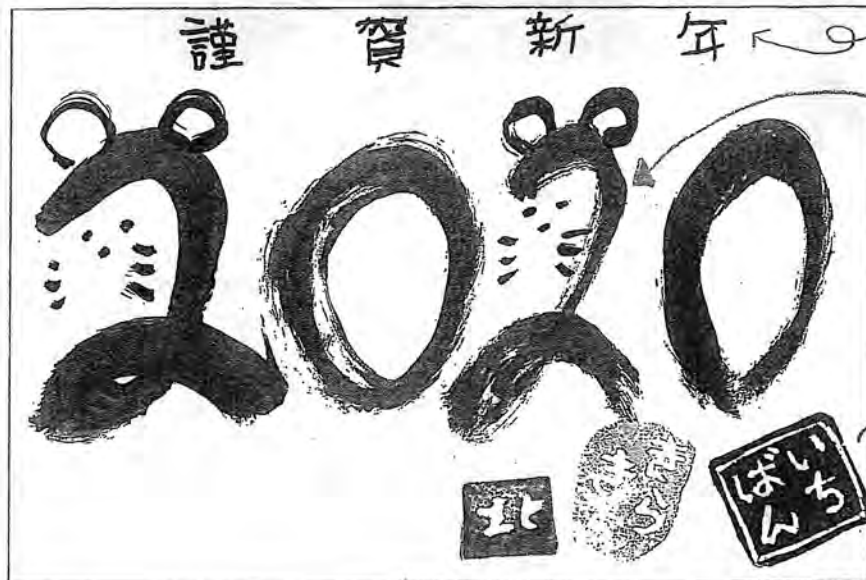 謹賀新年
2020
北
いち
ばん